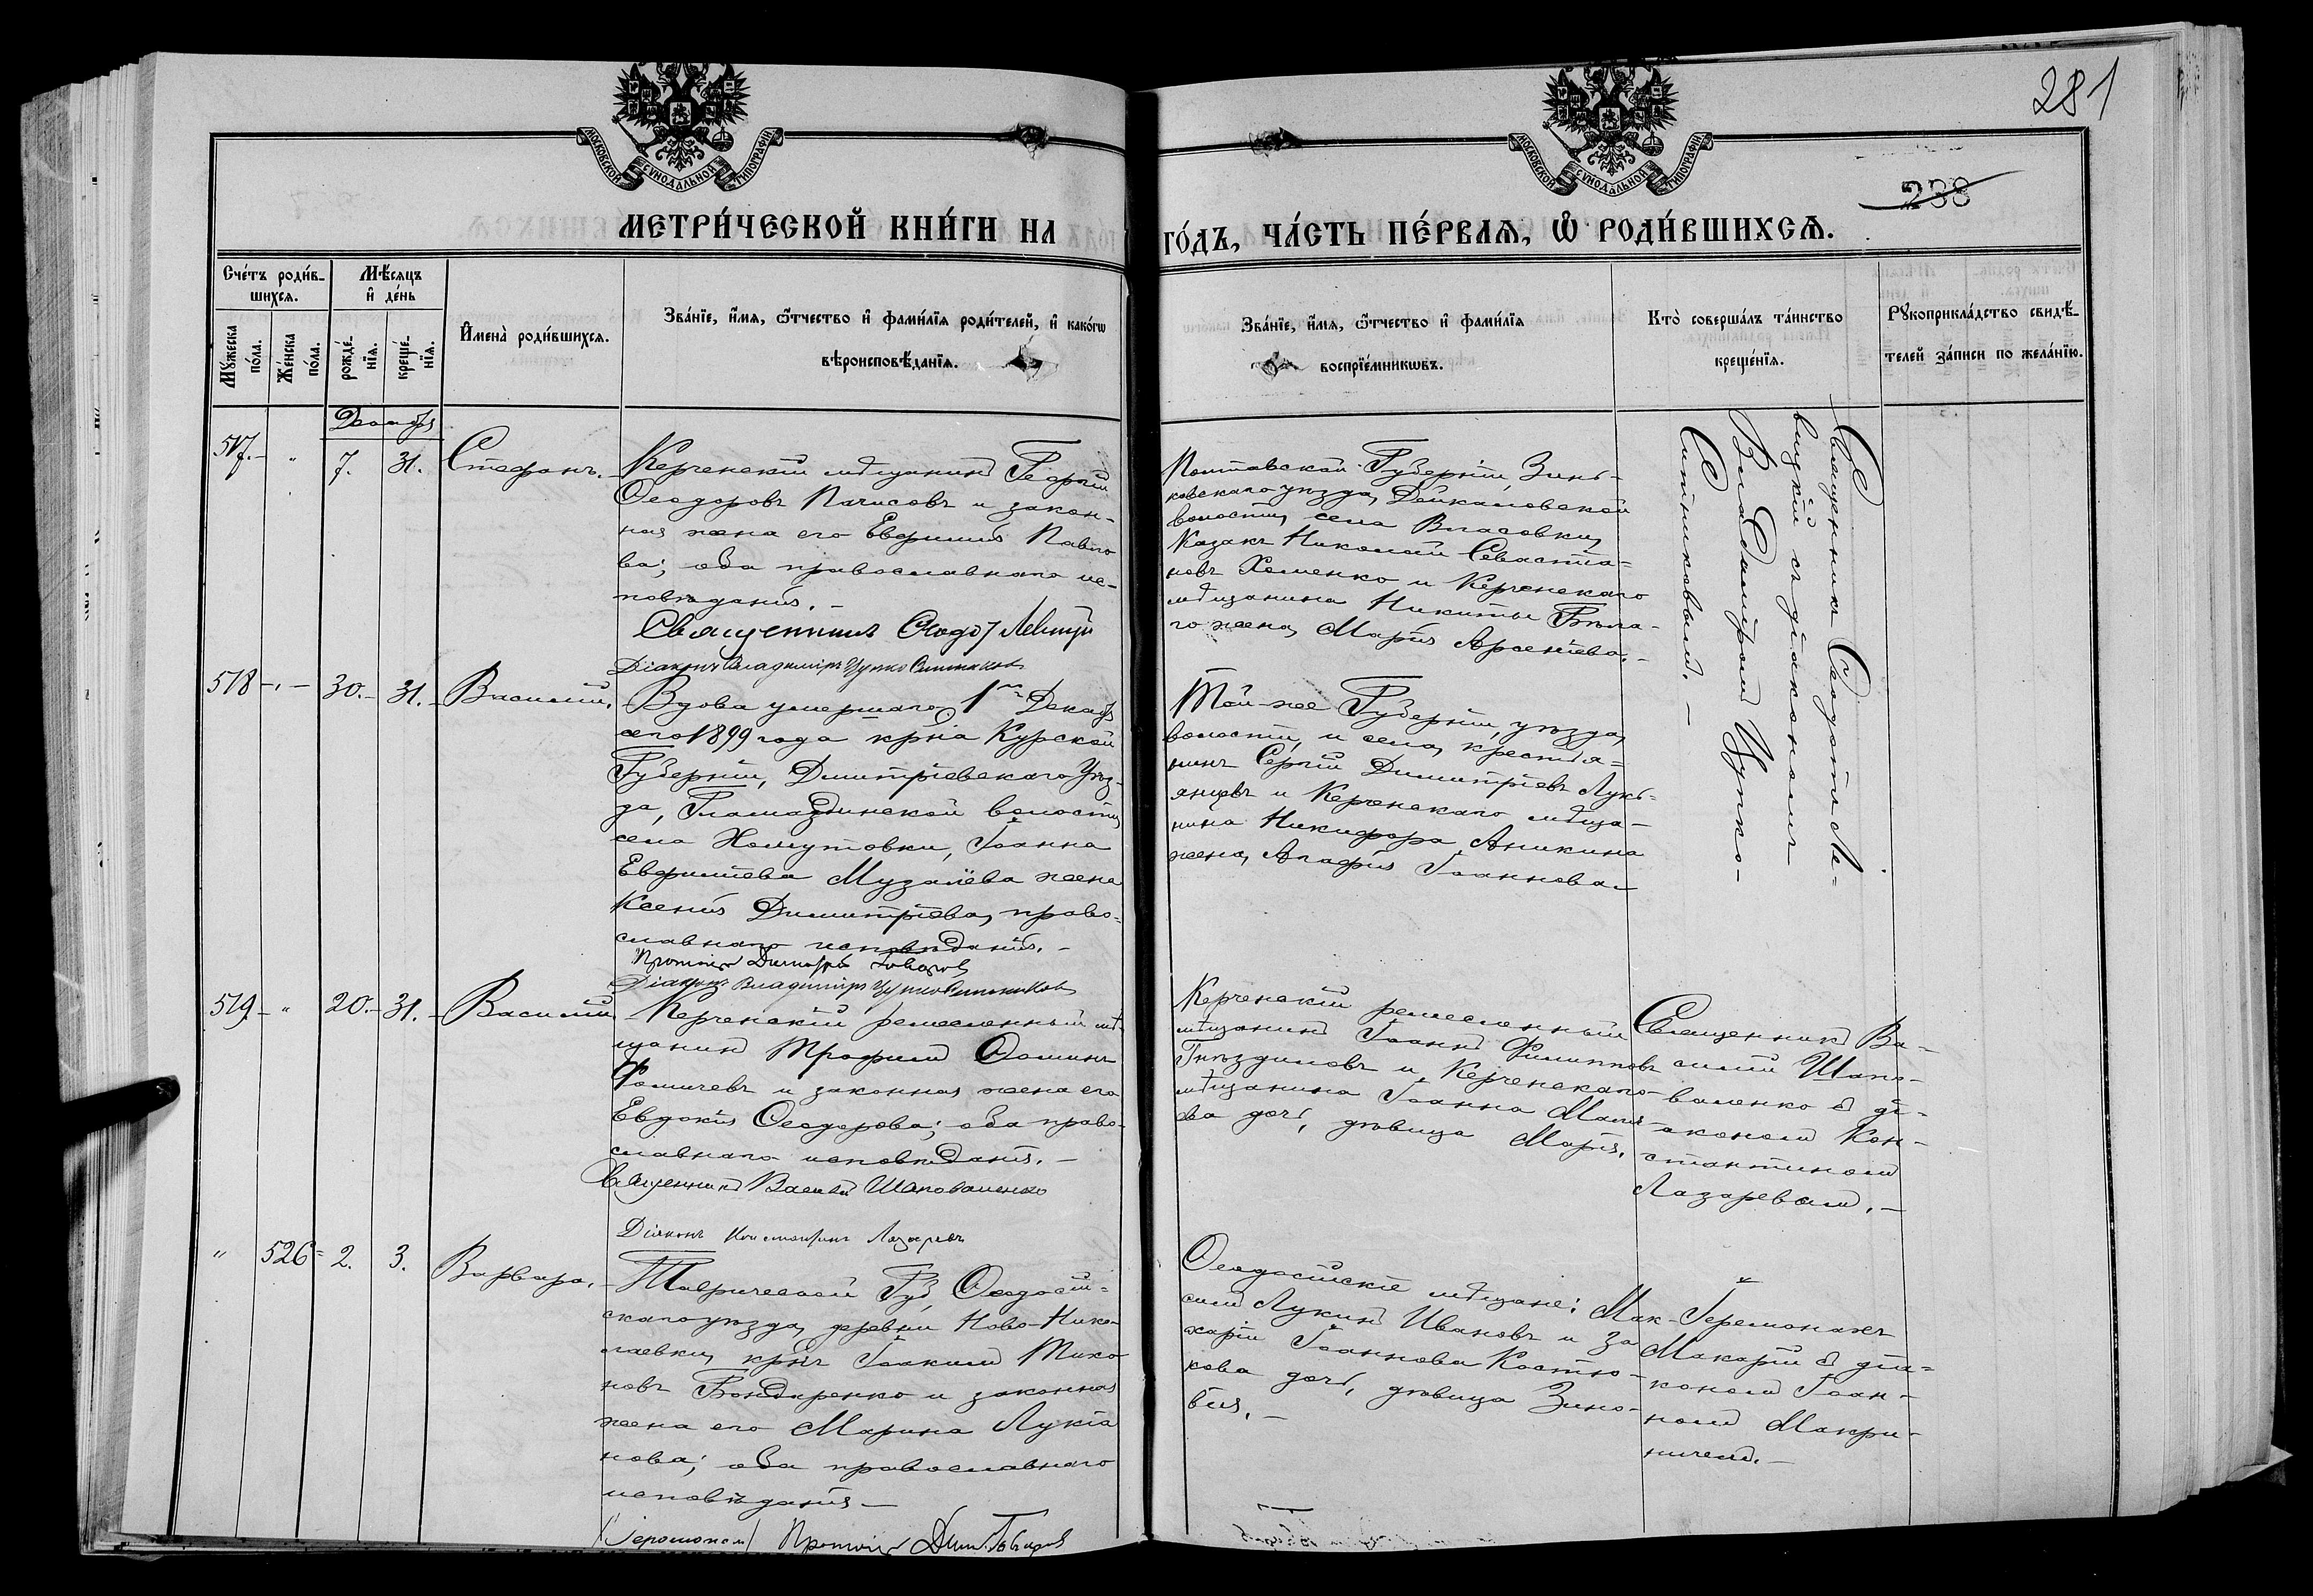 281
238
МОСКОВСКОЙ СѴНОДАЛЬНОЙ ТИПОГРАФІИ
МОСКОВСКОЙ СѴНОДАЛЬНОЙ ТИПОГРАФІИ
МЕТРИ́ЧЕСКОЙ КНИ́ГИ НА
ГО́ДЪ, ЧА́СТЬ ПЕ́РВАѦ, Ѡ҆ РОДИ́ВШИХСѦ.
Сче́тъ роди́в-
шихсѧ.
Мѣ́сѧцъ
и҆ де́нь
Мꙋ́жеска
по́ла.
Же́нска
по́ла.
рожде́-
нїѧ.
креще́-
нїѧ.
И҆мена̀ роди́вшихсѧ.
Зва́нїе, и҆́мѧ, ѻ҆́тчество и҆ фами́лїѧ роди́телей, и҆ како́гѡ
вѣроисповѣ́данїѧ.
Зва́нїе, и҆́мѧ, ѻ҆́тчество и҆ фами́лїѧ
воспрїе́мникѡвъ.
Кто̀ соверша́лъ та́инство
креще́нїѧ.
Рꙋкоприкла́дство свидѣ́-
телей за́писи по жела́нїю.
Декабрь
517. - " 7. 31. Стефанъ.
Керченскій мѣщанинъ Георгій
Ѳеодоровъ Пачисовъ и закон-
ная жена его Евфимія Павло
ва; оба православнаго ис-
повѣданія. -
Священникъ Ѳеодотъ Левицкій
Діаконъ Владиміръ Цупко Ситниковъ
Полтавской Губерніи, Зинь-
ковскаго уѣзда, Дейкаловской
волости, села Власовки,
Казакъ Николай Севастіа=
новъ Хоменко и Керченскаго
мѣщанина Никиты Бѣла-
го жена, Марія Арсеніева. -
Священникъ Ѳеодотъ Ле=
вицкій съ діакономъ
Владиміромъ Цупко-
Ситниковымъ. -
518 - " - 30. - 31. - Василій.
Вдова умершаго 1го Декабря
сего 1899 года крн҃а Курской
Губерніи, Димитріевскаго Уѣз-
да, Гламаздинской волости,
села Хомутовки, Іоанна
Евфиміева Музалёва жена
Ксенія Димитріева, право-
славнаго исповѣданія. -
Діаконъ Владиміръ Цупко Ситниковъ
Той-же Губерніи, уѣзда,
волости, и села, крестья=
нинъ Сергій Димитріевъ Лукь-
янцевъ и Керченскаго мѣща-
нина Никифора Аникина
жена, Агафія Іоаннова -
519 - " 20. - 31. - Василій
Керченскій ремесленный мѣ-
щанинъ Трофимъ Ѳоминъ
Ѳомичевъ и законная жена его
Евдокія Ѳеодорова; оба право-
славнаго исповѣданія. -
Священникъ Василій Шаповаленко
Діаконъ Константинъ Лазаревъ
Керченскій ремесленный
мѣщанинъ Іоаннъ Филипповъ
Гнѣздиловъ и Керченскаго
мѣщанина Іоанна
ва дочь, дѣвица Марія.
Священникъ Ва-
силій Шапо-
валенко съ ді-
акономъ Кон-
стантиномъ
Лазаревымъ. -
" 526 = 2. 3. Варвара.
Таврической Губ, Ѳеодосій=
скаго уѣзда, деревни Ново-Нико-
лаевки, крн҃ъ Іоакимъ Тихо
новъ Бондаренко и законная
жена его Марина Лукіа
нова; оба православнаго
исповѣданія -
Ѳеодосійскіе мѣщане: Мак-
симъ Лукинъ Ивановъ и За
харіи Іоаннова Костю-
кова дочь, дѣвица Зино-
вія. -
Іеромонахъ
Макарій съ діа=
кономъ Іоан-
номъ Макри-
ничемъ. -